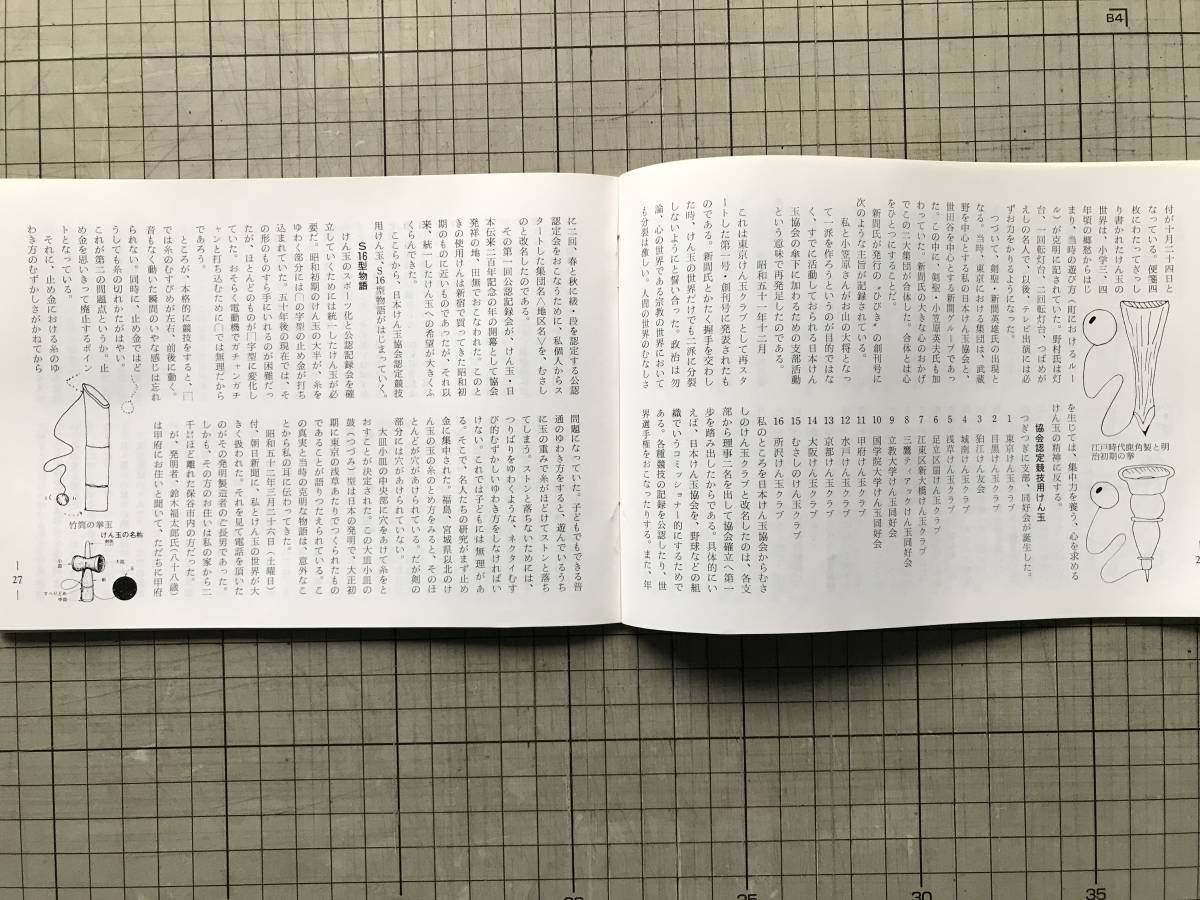 付が十月二十四日と
なっている。便箋四
枚にわたってぎっし
り書かれたけん玉の
世界は、小学三、四
年頃の郷愁からはじ
まり、当時の遊び方（町におけるルー
ル）が克明に記されていた。野村氏は灯
台、一回転灯台、二回転灯台、つばめが
えしの名人で、以後、テレビ出演には必
ずお力をかりるようになった。
つづいて、剣聖・新間英雄氏の出現と
なる。当時、東京における集団は、武蔵
野を中心とする私の日本けん玉協会と、
世田谷を中心とする新間グループであっ
た。この中に、剣聖・小笠原英夫氏も加
わっていた。新間氏の大きな心のおかげ
でこの二大集団が合体した。合体とは心
をひとつにすることだ。
新間氏が発行の〝ひびき〟の創刊号に
次のような主旨が記録されている。
私と小笠原さんがお山の大将となっ
て一派を作ろうというのが目的ではな
く、すでに活動しておられる日本けん
玉協会の傘下に加わるための支部活動
という意味で再発足したのである。
昭和五十一年十二月
これは東京けん玉クラブとして再スタ
ートした第一号・創刊号に発表されたも
のである。新間氏とかたく握手を交わし
た時、けん玉の世界だけでも二派に分裂
しないようにと誓い合った。政治は勿
論、心の世界である宗教の世界において
も分裂は激しい。人間の世界のむなしさ
江戸時代鹿角製と明
治初期の拳
を生じては、集中力を養う、心を求める
けん玉の精神に反する。
つぎつぎに支部、同好会が誕生した。
協会認定競技用けん玉
1 東京けん玉クラブ
2 目黒けん玉クラブ
3 狛江けん友会
4 城南けん玉クラブ
5 浅草けん玉クラブ
6 足立区扇けん玉クラブ
7 江東区新大橋けん玉クラブ
8 三鷹ティアックけん玉同好会
9 立教大学けん玉同好会
10 国学院大学けん玉同好会
11 甲府けん玉クラブ
12 水戸けん玉クラブ
13 京都けん玉クラブ
14 大阪けん玉クラブ
15 むさしのけん玉クラブ
16 所沢けん玉クラブ
私のところを日本けん玉協会からむさ
しのけん玉クラブと改名したのは、各支
部から理事二名を出して協会確立へ第一
歩を踏み出したからである。具体的にい
えば、日本けん玉協会を、野球などの組
織でいうコミッショナー的にするためで
ある。各種競技の記録を公認したり、世
界選手権をおこなったりする。また、年
に二回、春と秋に級・段を認定する公認
認定会をおこなうために、私個人からス
タートした集団名へ地区名∨を、むさし
のと改名したのである。
その第一回公認記録会が、けん玉・日
本伝来二百年記念の年の開幕として協会
発祥の地、田無でおこなわれた。このと
きの使用けんは新宿で買ってきた昭和初
期のものに近いものであったが、それ以
来、統一したけん玉への希望が大きくふ
くらんできた。
ここらから、日本けん玉協会認定競技
用けん玉、S16型物語がはじまっていく。
S16型物語
けん玉のスポーツ化と公認記録会を確
立していくためには統一したけん玉が必
要だ。昭和初期のけん玉の大半が、糸を
ゆわく部分には∩の字型の止め金が打ち
込まれていた。五十年後の現在では、そ
の形のものすら手にいれるのが困難だっ
たが、ほとんどのものが冂字型に変化し
ていた。おそらく電動機でガチャンガチ
ャンと打ち込むために∩では無理だから
であろう。
ところが、本格的に競技をすると、冂
では糸のむすびめが左右、前後に動く。
音もなく動いた瞬間のいやな感じは忘れ
られない。同時に、止め金ではど
うしても糸の切れかたがはやい。
これが第二の問題点というか。止
め金を思いきって廃止するポイン
トとなっている。
それに、止め金における糸のゆ
わき方のむずかしさがかねてから
問題になっていた。子どもでもできる普
通のゆわき方をすると、遊んでいるうち
に玉の重みで糸がほどけてストンと落ち
てしまう。ストンと落ちないためには、
つりばりをゆわくような、ネクタイむす
び的なむずかしいゆわき方をしなければい
けない。これでは子どもには無理があ
る。そこで、名人たちの研究がまず止め
金に集中された。福島、宮城県以北のけ
ん玉の玉の糸のとめ方をみると、そのほ
とんどが穴があけられている。だが剣の
部分には穴があけられていない。
大皿小皿の中央部に穴をあけて糸をと
おすことが決定された。この大皿小皿の
鼓（つづみ）型は日本の発明で、大正初
期に東京の浅草あたりでつくられたもの
であることが語りつたえられている。こ
の真実と当時の克明な物語は、意外なこ
とから私の耳に伝わってきた。
昭和五十二年三月二十六日（土曜日）
付、朝日新聞に、私とけん玉の世界が大
きく扱われた。それを見て電話を頂いた
のがその発明製造者のご長男であった。
しかも、その方のお住いは私の家から二
千㍍ほど離れた保谷市内の方だった。
が、発明者、鈴木福太郎氏（八十八歳）
は甲府にお住いと聞いて、ただちに甲府
竹筒の拳玉
けん玉の名称
大皿
小皿
玉
剣
すべりどめ
中皿
— 27 —
B4
25
30
35